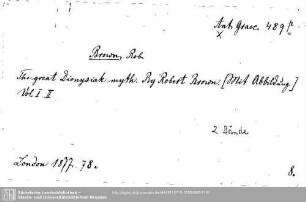 Ant. Graec. 489 f
x
Brown, Rob.
The great Dionysiak myth. By Robert Brown. [Mit Abbildung.]
Vol I. II
2 Bände
London 1877-78.
8.
Sächsische Landesbibliothek -
Staats- und Universitätsbibliothek Dresden